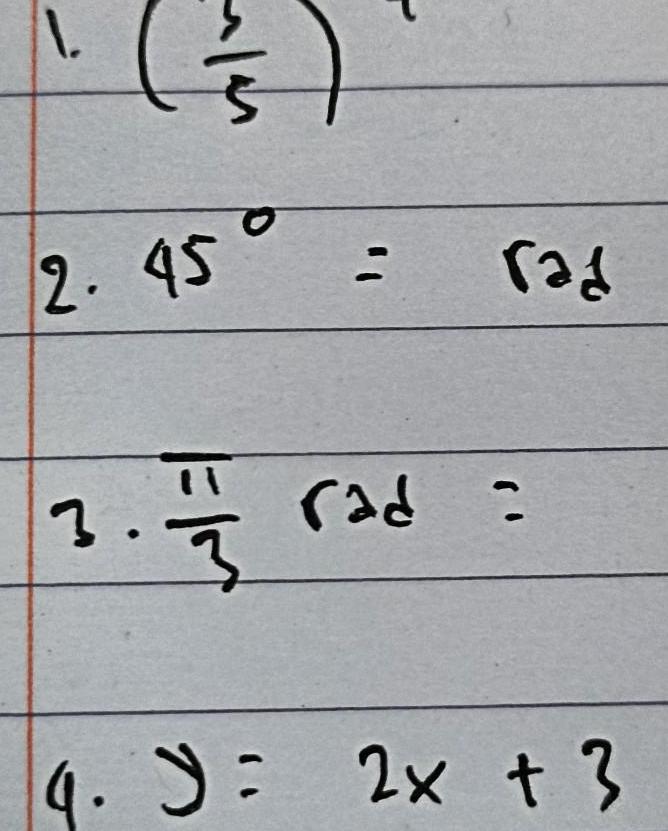 1. ( /5)
2. 45° = rad
3. π/3 rad =
4. y = 2x + 3